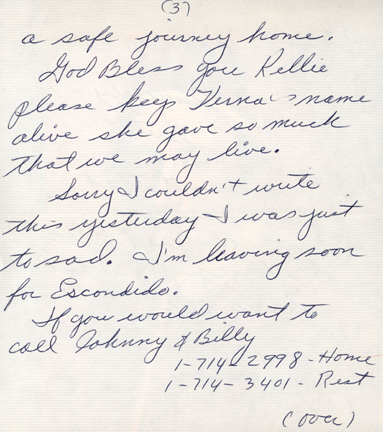 (3)
a safe journey home.
God Bless you Kellie
please keep Verna's name
alive she gave so much
that we may live.
Sorry I couldn't write
this yesterday I was just
to sad. I'm leaving soon
for Escondido.
If you would want to
call Johnny & Billy
1-714-2998-Home
1-714-3401-Rest
(over)